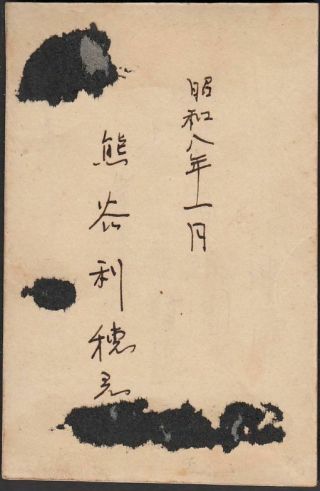 昭和八年十一月
熊谷利穂君